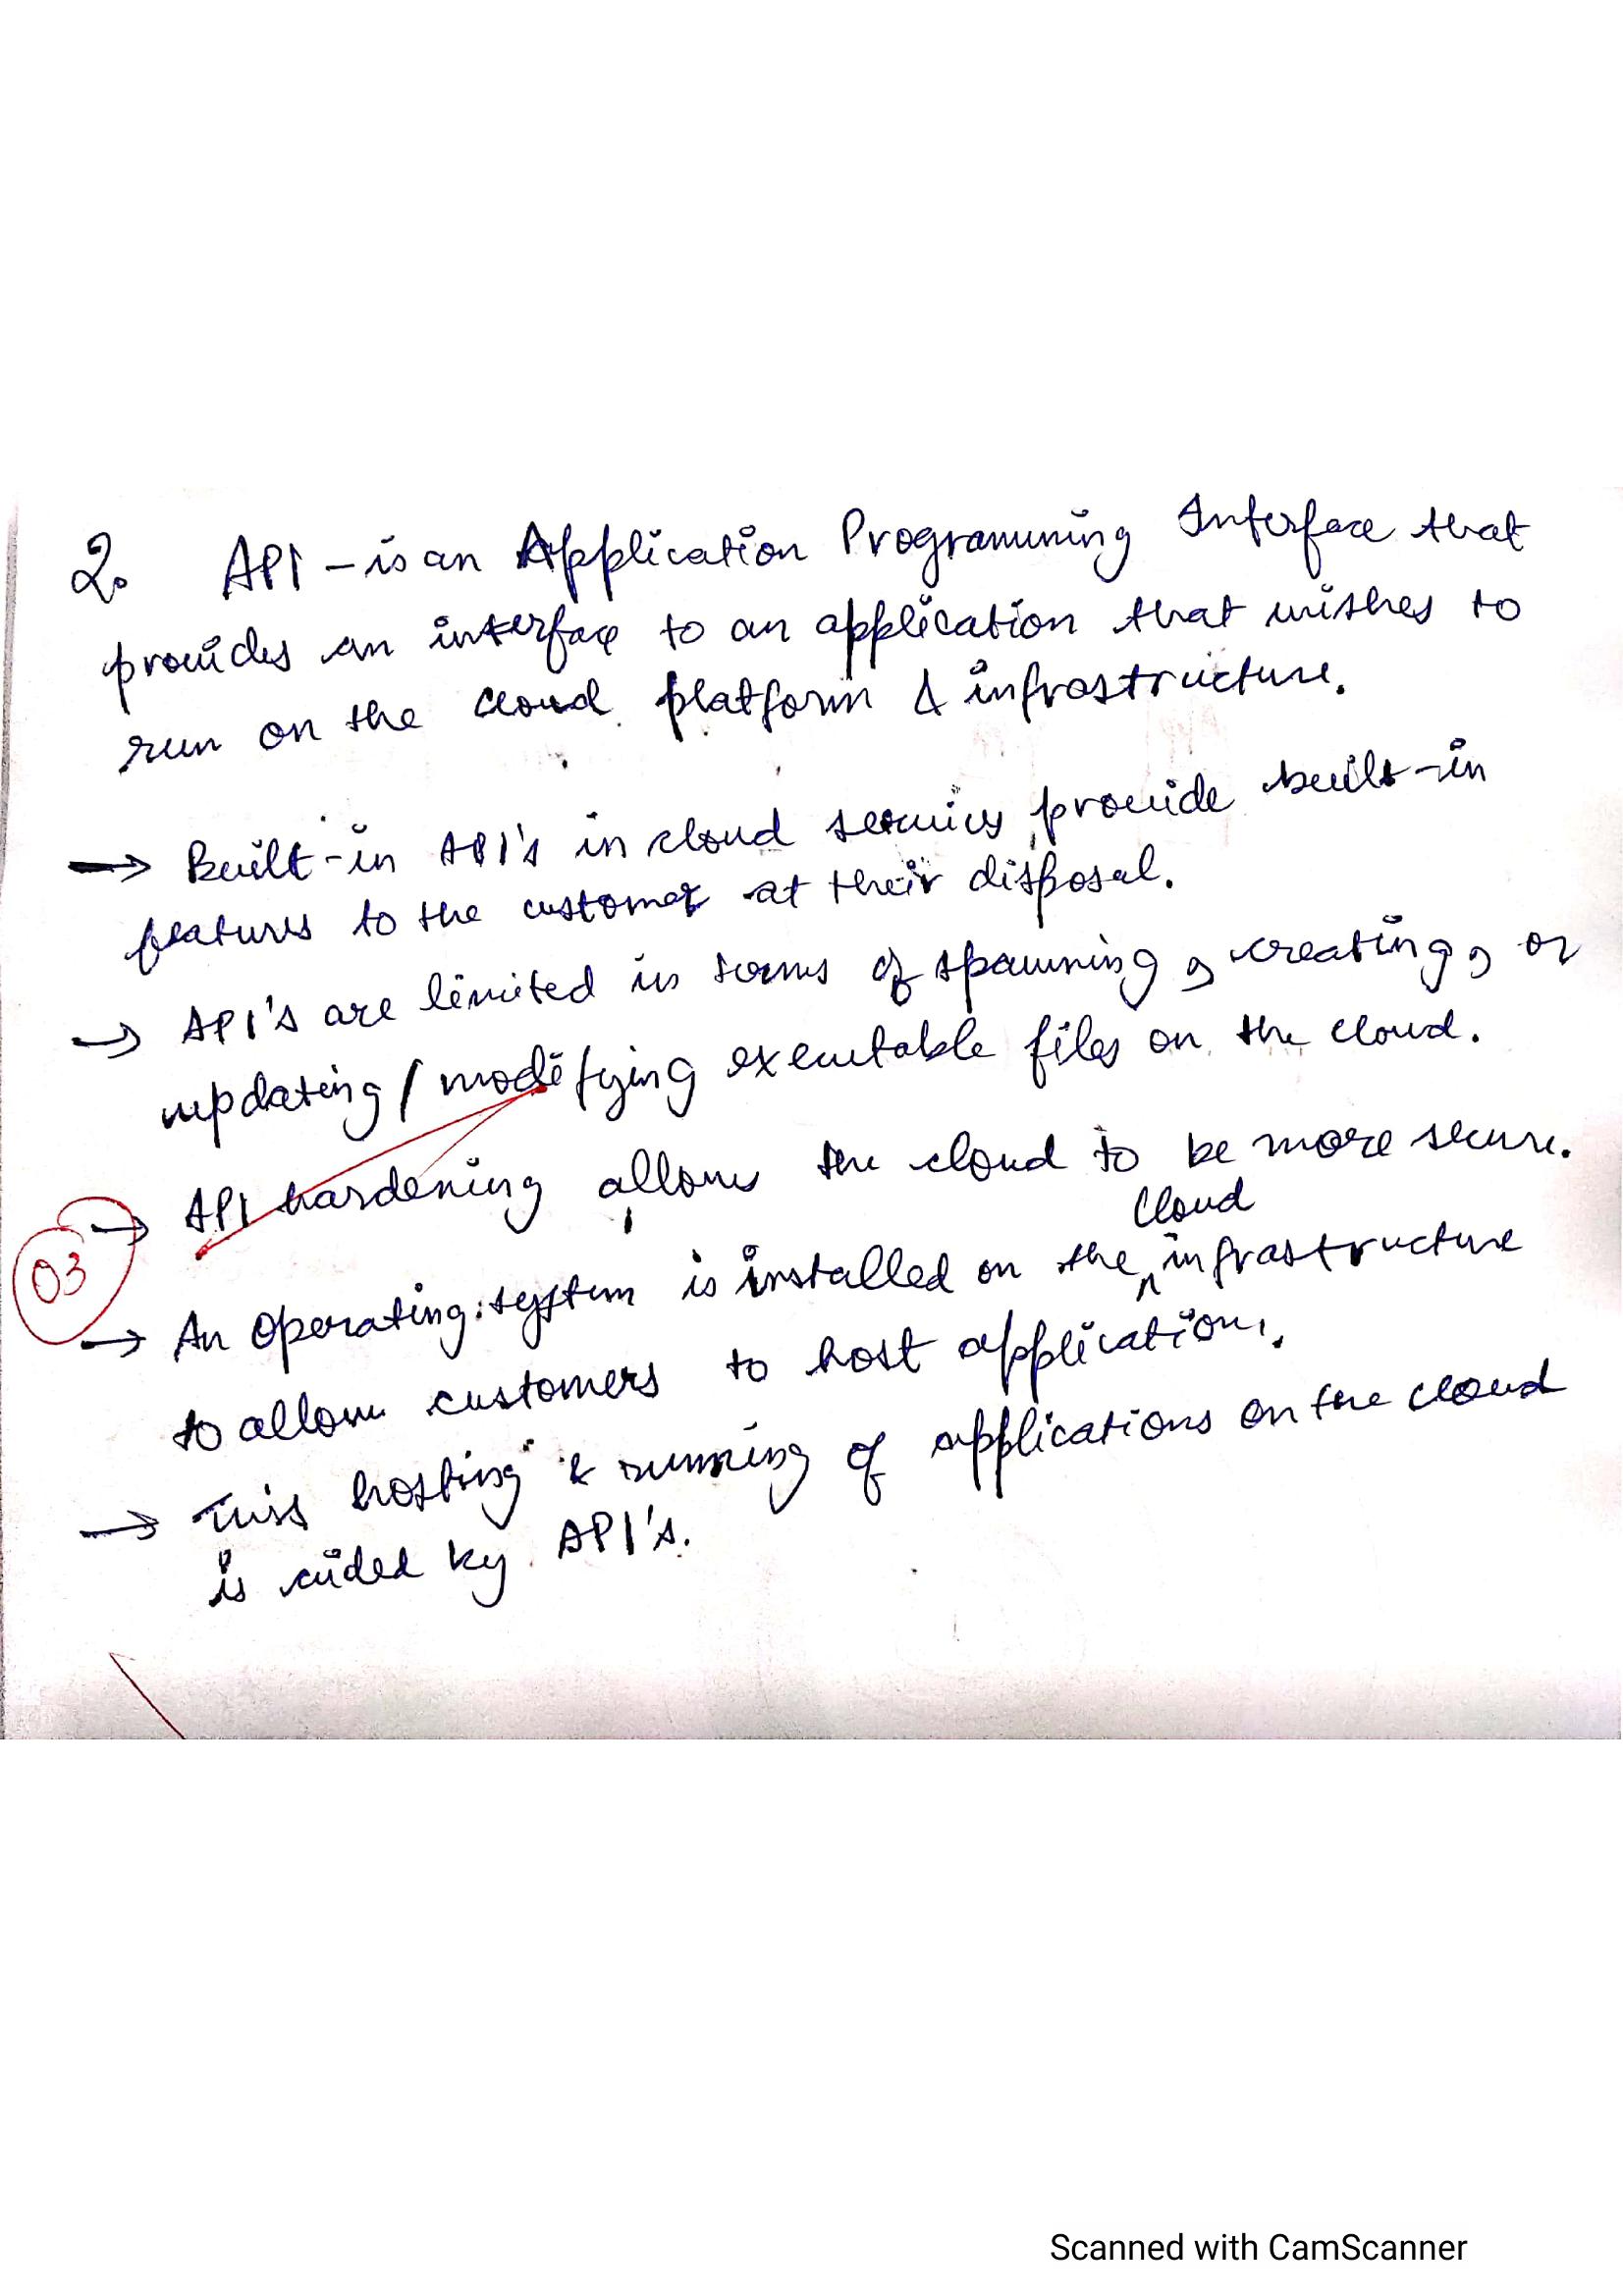 2. API - is an Application Programming Interface that
provides an interface to an application that wishes to
run on the cloud platform & infrastructure.
→ Built-in API's in cloud services provide built-in
features to the customer at their disposal.
→ API's are limited in terms of spawning, creating, or
updating / modifying executable files on the cloud.
→ API hardening allows the cloud to be more secure.
03
cloud
→ An operating system is installed on the ^ infrastructure
to allow customers to host applications.
→ This hosting & running of applications on the cloud
is aided by API's.
Scanned with CamScanner